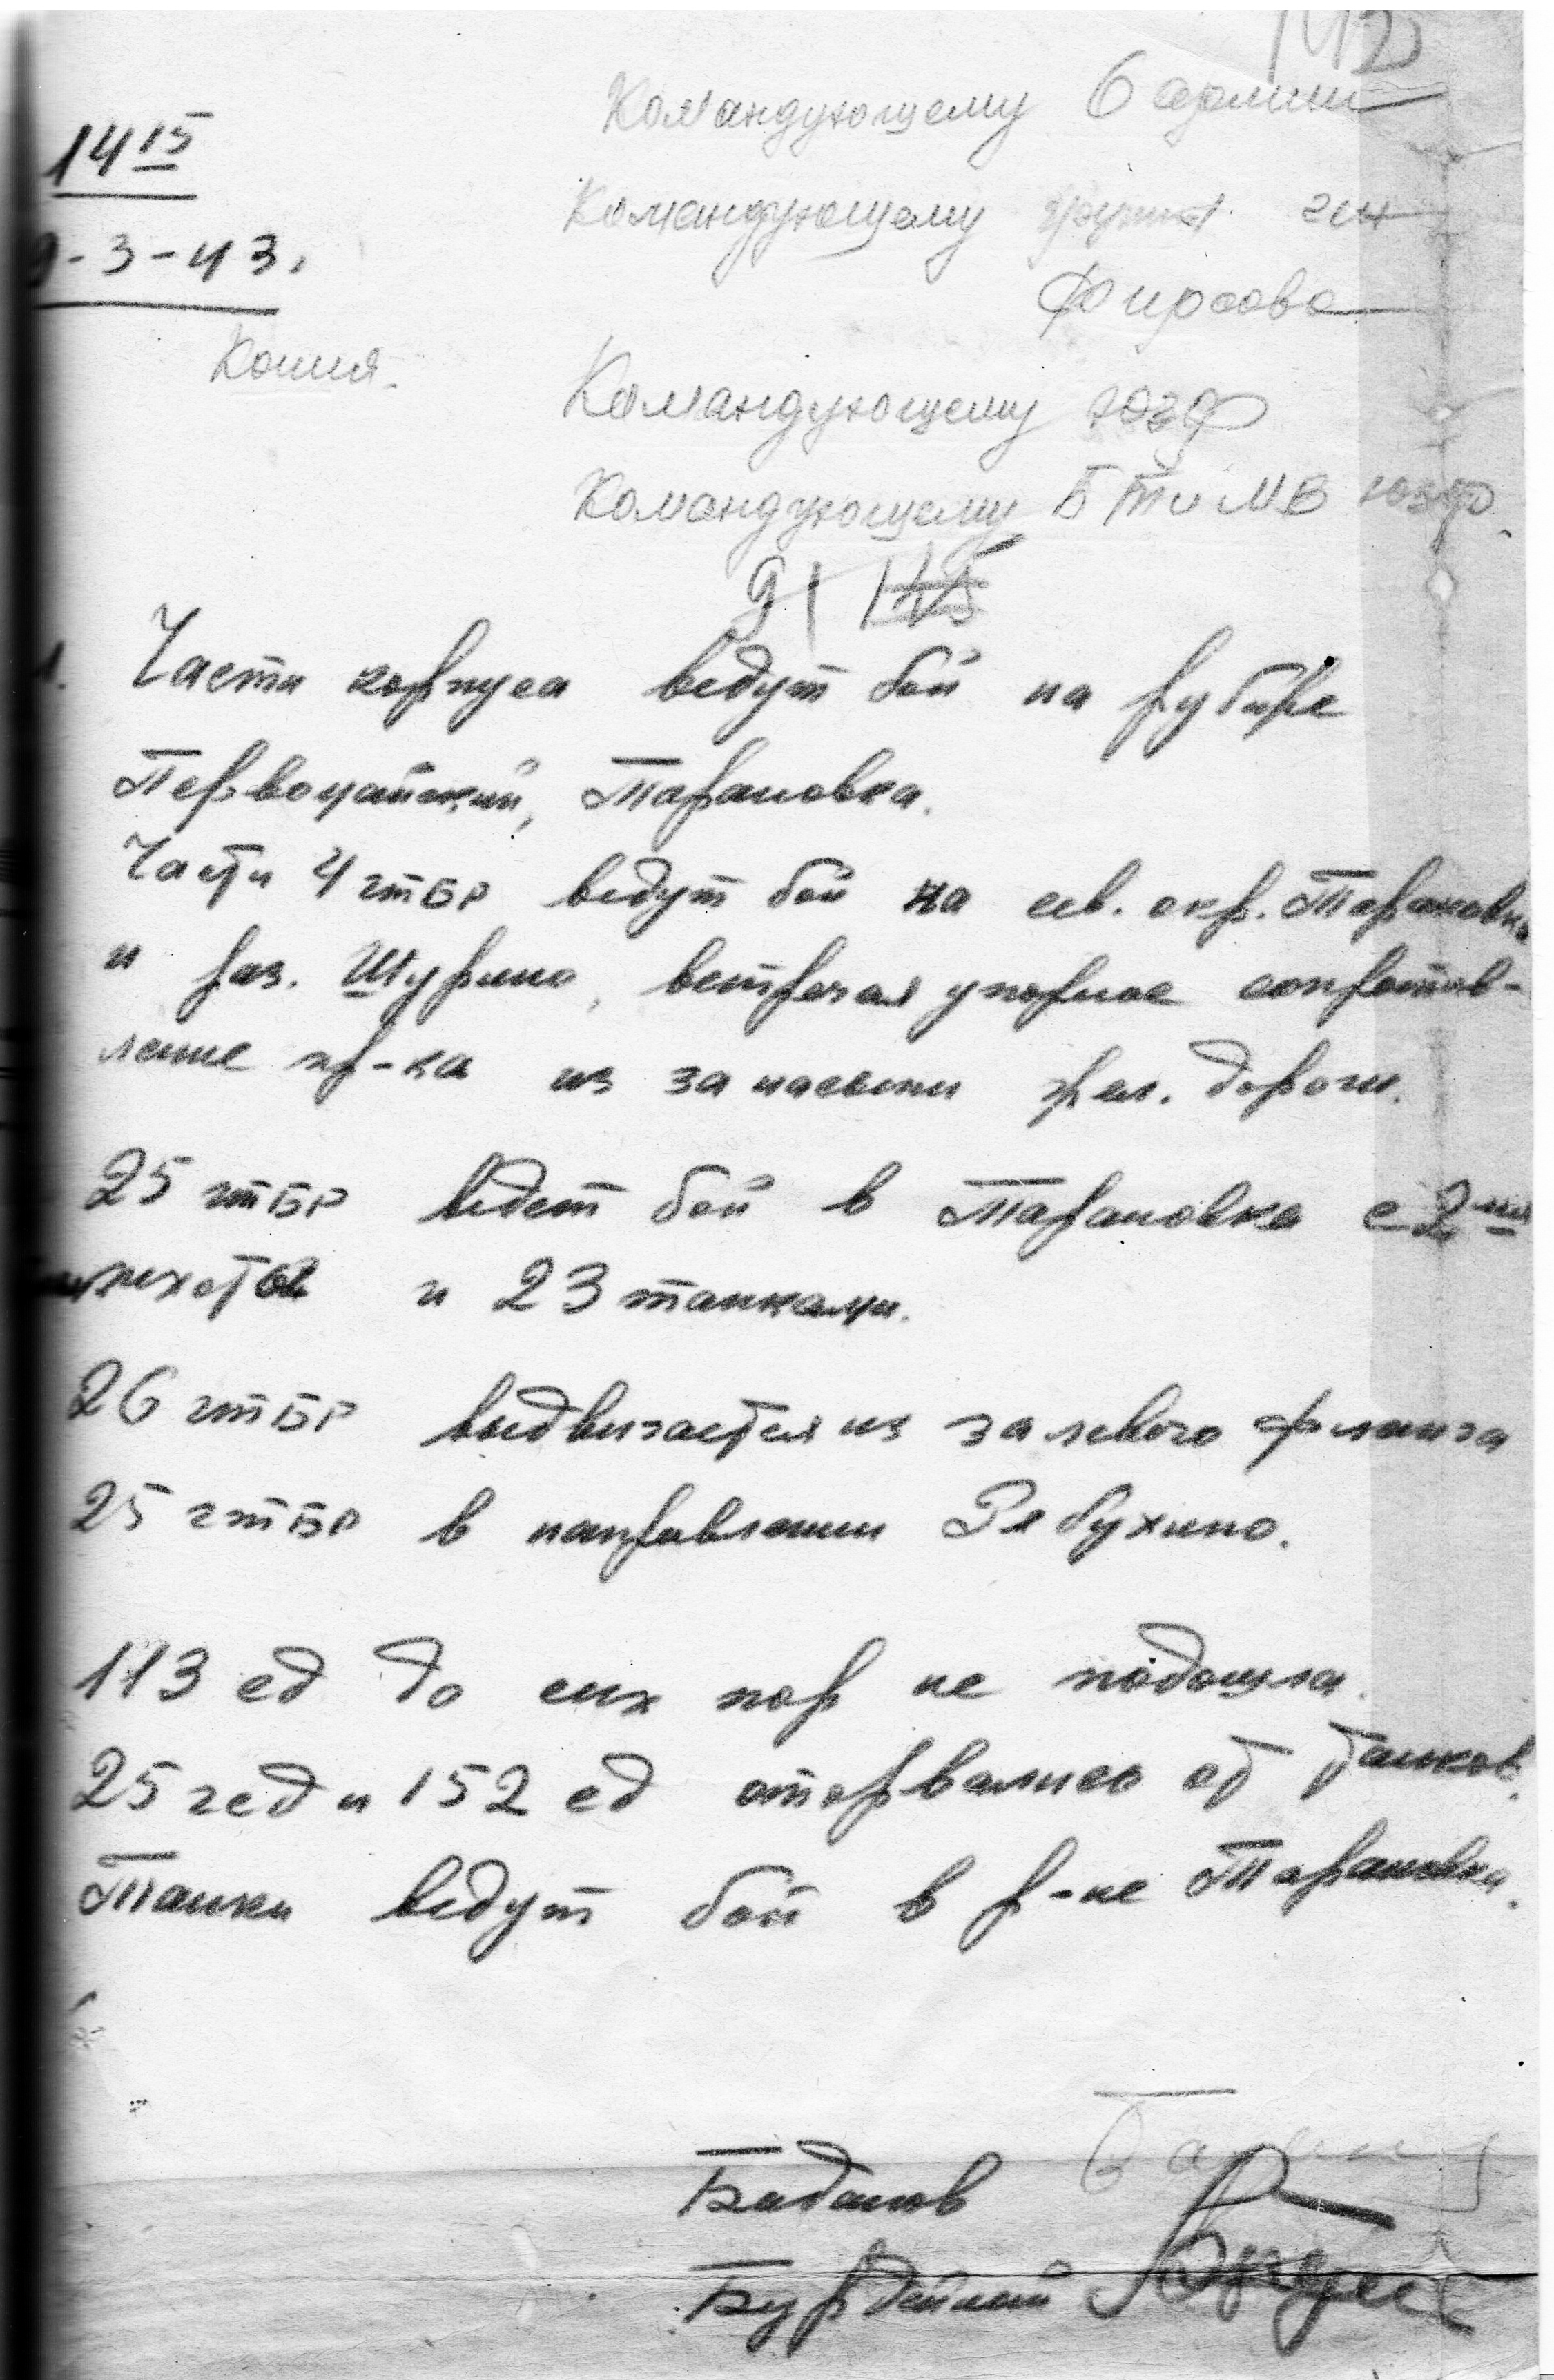 142
Командующему 6 армии
14 15
Командующему группы ген
9-3-43.
Фирсова
Копия.
Командующему ЮЗФ
Командующему БТ и МВ ЮЗФ
1. Части корпуса ведут бой на рубеже
Первомайский, Тарановка.
Части 4 гтБР ведут бой на сев. окр. Тарановка
и раз. Шурино, встречая упорное сопротив-
ление пр-ка из за насыпи жел. дороги.
25 гтБР ведет бой в Тарановка с 2-мя
пехоты и 23 танками.
26 гтБР выдвигается из за левого фланга
25 гтБР в направлении Рябухино.
113 сд до сих пор не подошла.
25 гсд и 152 сд оторвались от танков.
Танки ведут бой в р-не Тарановка.
Баданов
Бурдейный